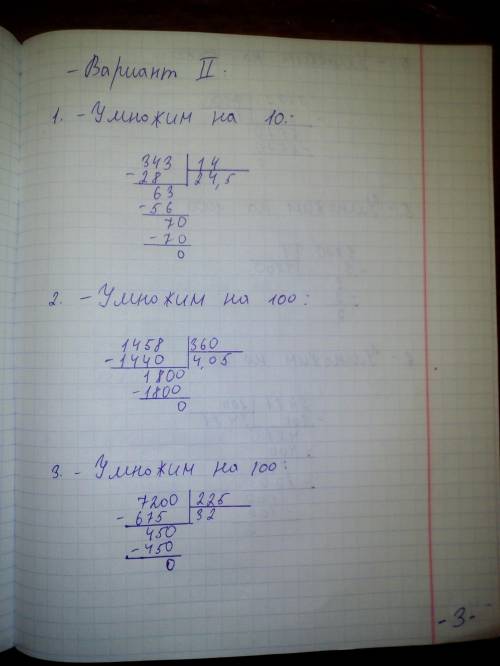 - Вариант II.
1. - Умножим на 10:
343 | 14
- 28 | 24,5
63
- 56
70
- 70
0
2. - Умножим на 100:
1458 | 360
- 1440 | 4,05
1800
- 1800
0
3. - Умножим на 100:
7200 | 225
- 675 | 32
450
- 450
0
- 3 -